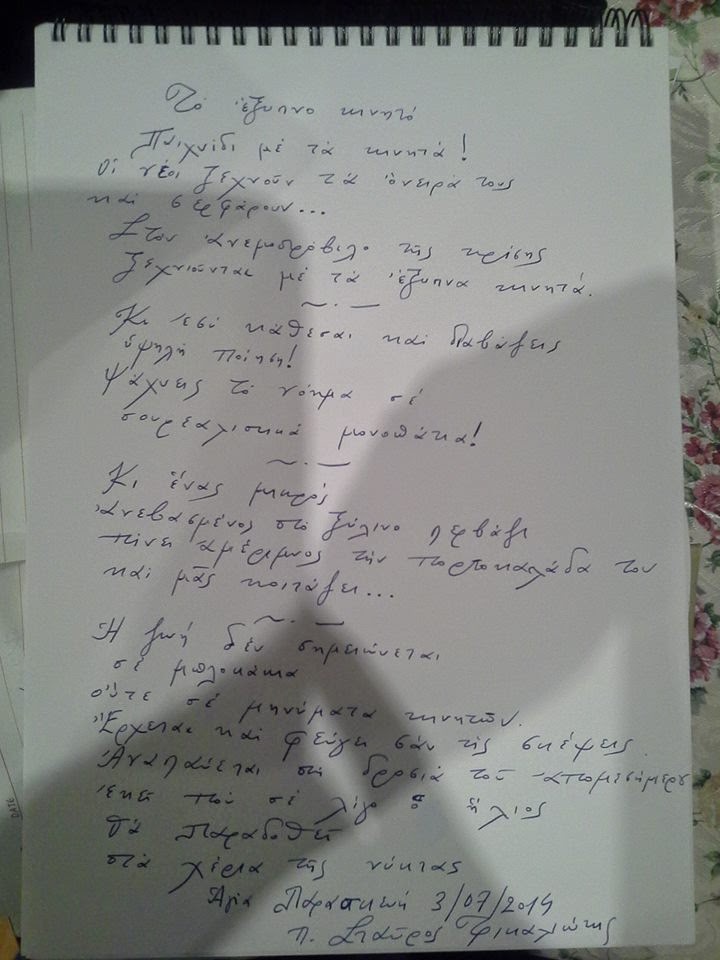 Τὸ ἔξυπνο κινητό
Παιχνίδι μέ τά κινητά!
Οἱ νέοι ξεχνοῦν τά ὄνειρά τους
καί σερφάρουν...
Στόν ἀνεμοστρόβιλο τῆς κρίσης
ξεχνιοῦνται μέ τά ἔξυπνα κινητά.
Κι ἐσύ κάθεσαι καί διαβάζεις
ὑψηλή ποίηση!
Ψάχνεις τό νόημα σέ
σουρεαλιστικά μονοπάτια!
Κι ἕνας μικρός
ἀνεβασμένος στό ξύλινο περβάζι
πίνει ἀμέριμνος τήν πορτοκαλάδα του
καί μᾶς κοιτάζει...
Ἡ ζωή δέν σημειώνεται
σέ μπλοκάκια
οὔτε σέ μηνύματα κινητῶν.
Ἔρχεται καί φεύγει σάν τίς σκέψεις.
Ἀναπαύεται στή δροσιά τοῦ ἀπομεσήμερου
ἐκεῖ πού σέ λίγο ὁ ἥλιος
θά παραδοθεῖ
στά χέρια τῆς νύκτας
Ἁγία Παρασκευή 3/07/2014
π. Σταῦρος